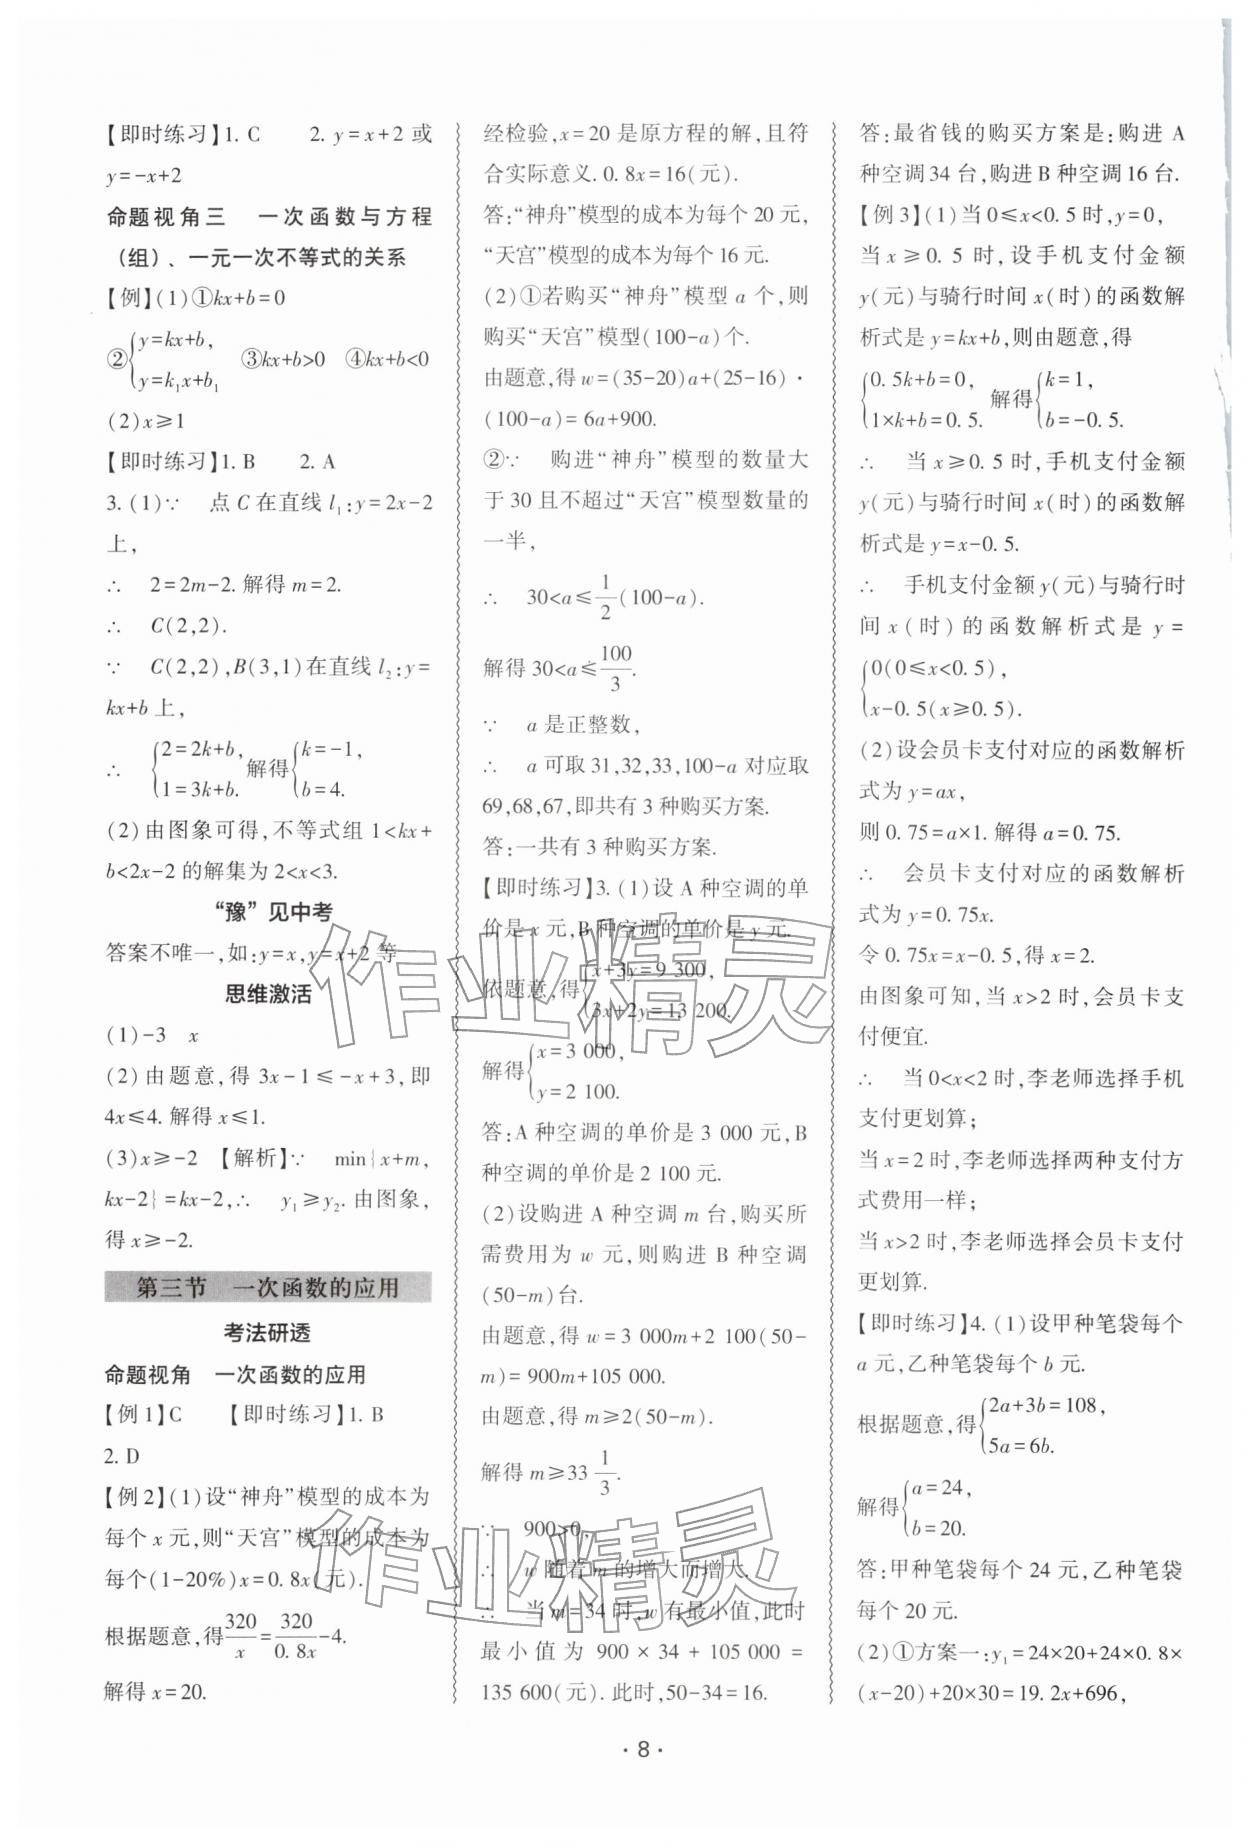 【即时练习】1. C　　2. y=x+2 或
y=-x+2
命题视角三　一次函数与方程
（组）、一元一次不等式的关系
【例】(1)①kx+b=0
②{y=kx+b,
y=k₁x+b₁　③kx+b>0　④kx+b<0
(2)x≥1
【即时练习】1. B　　2. A
3. (1)∵　点 C 在直线 l₁:y=2x-2
上,
∴　2=2m-2. 解得 m=2.
∴　C(2,2).
∵　C(2,2),B(3,1)在直线 l₂:y=
kx+b 上,
∴　{2=2k+b,
1=3k+b. 解得{k=-1,
b=4.
(2)由图象可得,不等式组 1<kx+
b<2x-2 的解集为 2<x<3.
“豫”见中考
答案不唯一,如:y=x,y=x+2 等
思维激活
(1)-3　x
(2)由题意,得 3x-1≤-x+3,即
4x≤4. 解得 x≤1.
(3)x≥-2　【解析】∵　min{x+m,
kx-2}=kx-2,∴　y₁≥y₂. 由图象,
得 x≥-2.
第三节　一次函数的应用
考法研透
命题视角　一次函数的应用
【例 1】C　　【即时练习】1. B
2. D
【例 2】(1)设“神舟”模型的成本为
每个 x 元,则“天宫”模型的成本为
每个(1-20%)x=0. 8x(元).
根据题意,得320/x=320/0. 8x-4.
解得 x=20.
经检验,x=20 是原方程的解,且符
合实际意义. 0. 8x=16(元).
答:“神舟”模型的成本为每个 20 元,
“天宫”模型的成本为每个 16 元.
(2)①若购买“神舟”模型 a 个,则
购买“天宫”模型(100-a)个.
由题意,得 w=(35-20)a+(25-16)·
(100-a)=6a+900.
②∵　购进“神舟”模型的数量大
于 30 且不超过“天宫”模型数量的
一半,
∴　30<a≤1/2(100-a).
解得 30<a≤100/3.
∵　a 是正整数,
∴　a 可取 31,32,33,100-a 对应取
69,68,67,即共有 3 种购买方案.
答:一共有 3 种购买方案.
【即时练习】3. (1)设 A 种空调的单
价是 x 元,B 种空调的单价是 y 元.
依题意,得{x+3y=9 300,
3x+2y=13 200.
解得{x=3 000,
y=2 100.
答:A 种空调的单价是 3 000 元,B
种空调的单价是 2 100 元.
(2)设购进 A 种空调 m 台,购买所
需费用为 w 元,则购进 B 种空调
(50-m)台.
由题意,得 w=3 000m+2 100(50-
m)=900m+105 000.
由题意,得 m≥2(50-m).
解得 m≥33 1/3.
∵　900>0,
∴　w 随着 m 的增大而增大.
∴　当 m=34 时,w 有最小值,此时
最小值为 900×34+105 000=
135 600(元). 此时,50-34=16.
答:最省钱的购买方案是:购进 A
种空调 34 台,购进 B 种空调 16 台.
【例 3】(1)当 0≤x<0. 5 时,y=0,
当 x≥0. 5 时,设手机支付金额
y(元)与骑行时间 x(时)的函数解
析式是 y=kx+b,则由题意,得
{0. 5k+b=0,
1×k+b=0. 5. 解得{k=1,
b=-0. 5.
∴　当 x≥0. 5 时,手机支付金额
y(元)与骑行时间 x(时)的函数解
析式是 y=x-0. 5.
∴　手机支付金额 y(元)与骑行时
间 x(时)的函数解析式是 y=
{0(0≤x<0. 5),
x-0. 5(x≥0. 5).
(2)设会员卡支付对应的函数解析
式为 y=ax,
则 0. 75=a×1. 解得 a=0. 75.
∴　会员卡支付对应的函数解析
式为 y=0. 75x.
令 0. 75x=x-0. 5,得 x=2.
由图象可知,当 x>2 时,会员卡支
付便宜.
∴　当 0<x<2 时,李老师选择手机
支付更划算;
当 x=2 时,李老师选择两种支付方
式费用一样;
当 x>2 时,李老师选择会员卡支付
更划算.
【即时练习】4. (1)设甲种笔袋每个
a 元,乙种笔袋每个 b 元.
根据题意,得{2a+3b=108,
5a=6b.
解得{a=24,
b=20.
答:甲种笔袋每个 24 元,乙种笔袋
每个 20 元.
(2)①方案一:y₁=24×20+24×0. 8×
(x-20)+20×30=19. 2x+696,
作业精灵
作业精灵
· 8 ·